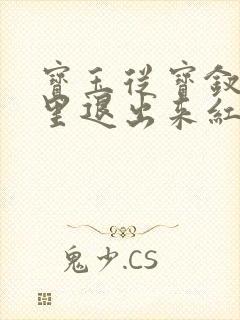 寶玉從寶釵
里退出來紅
鬼少.CS